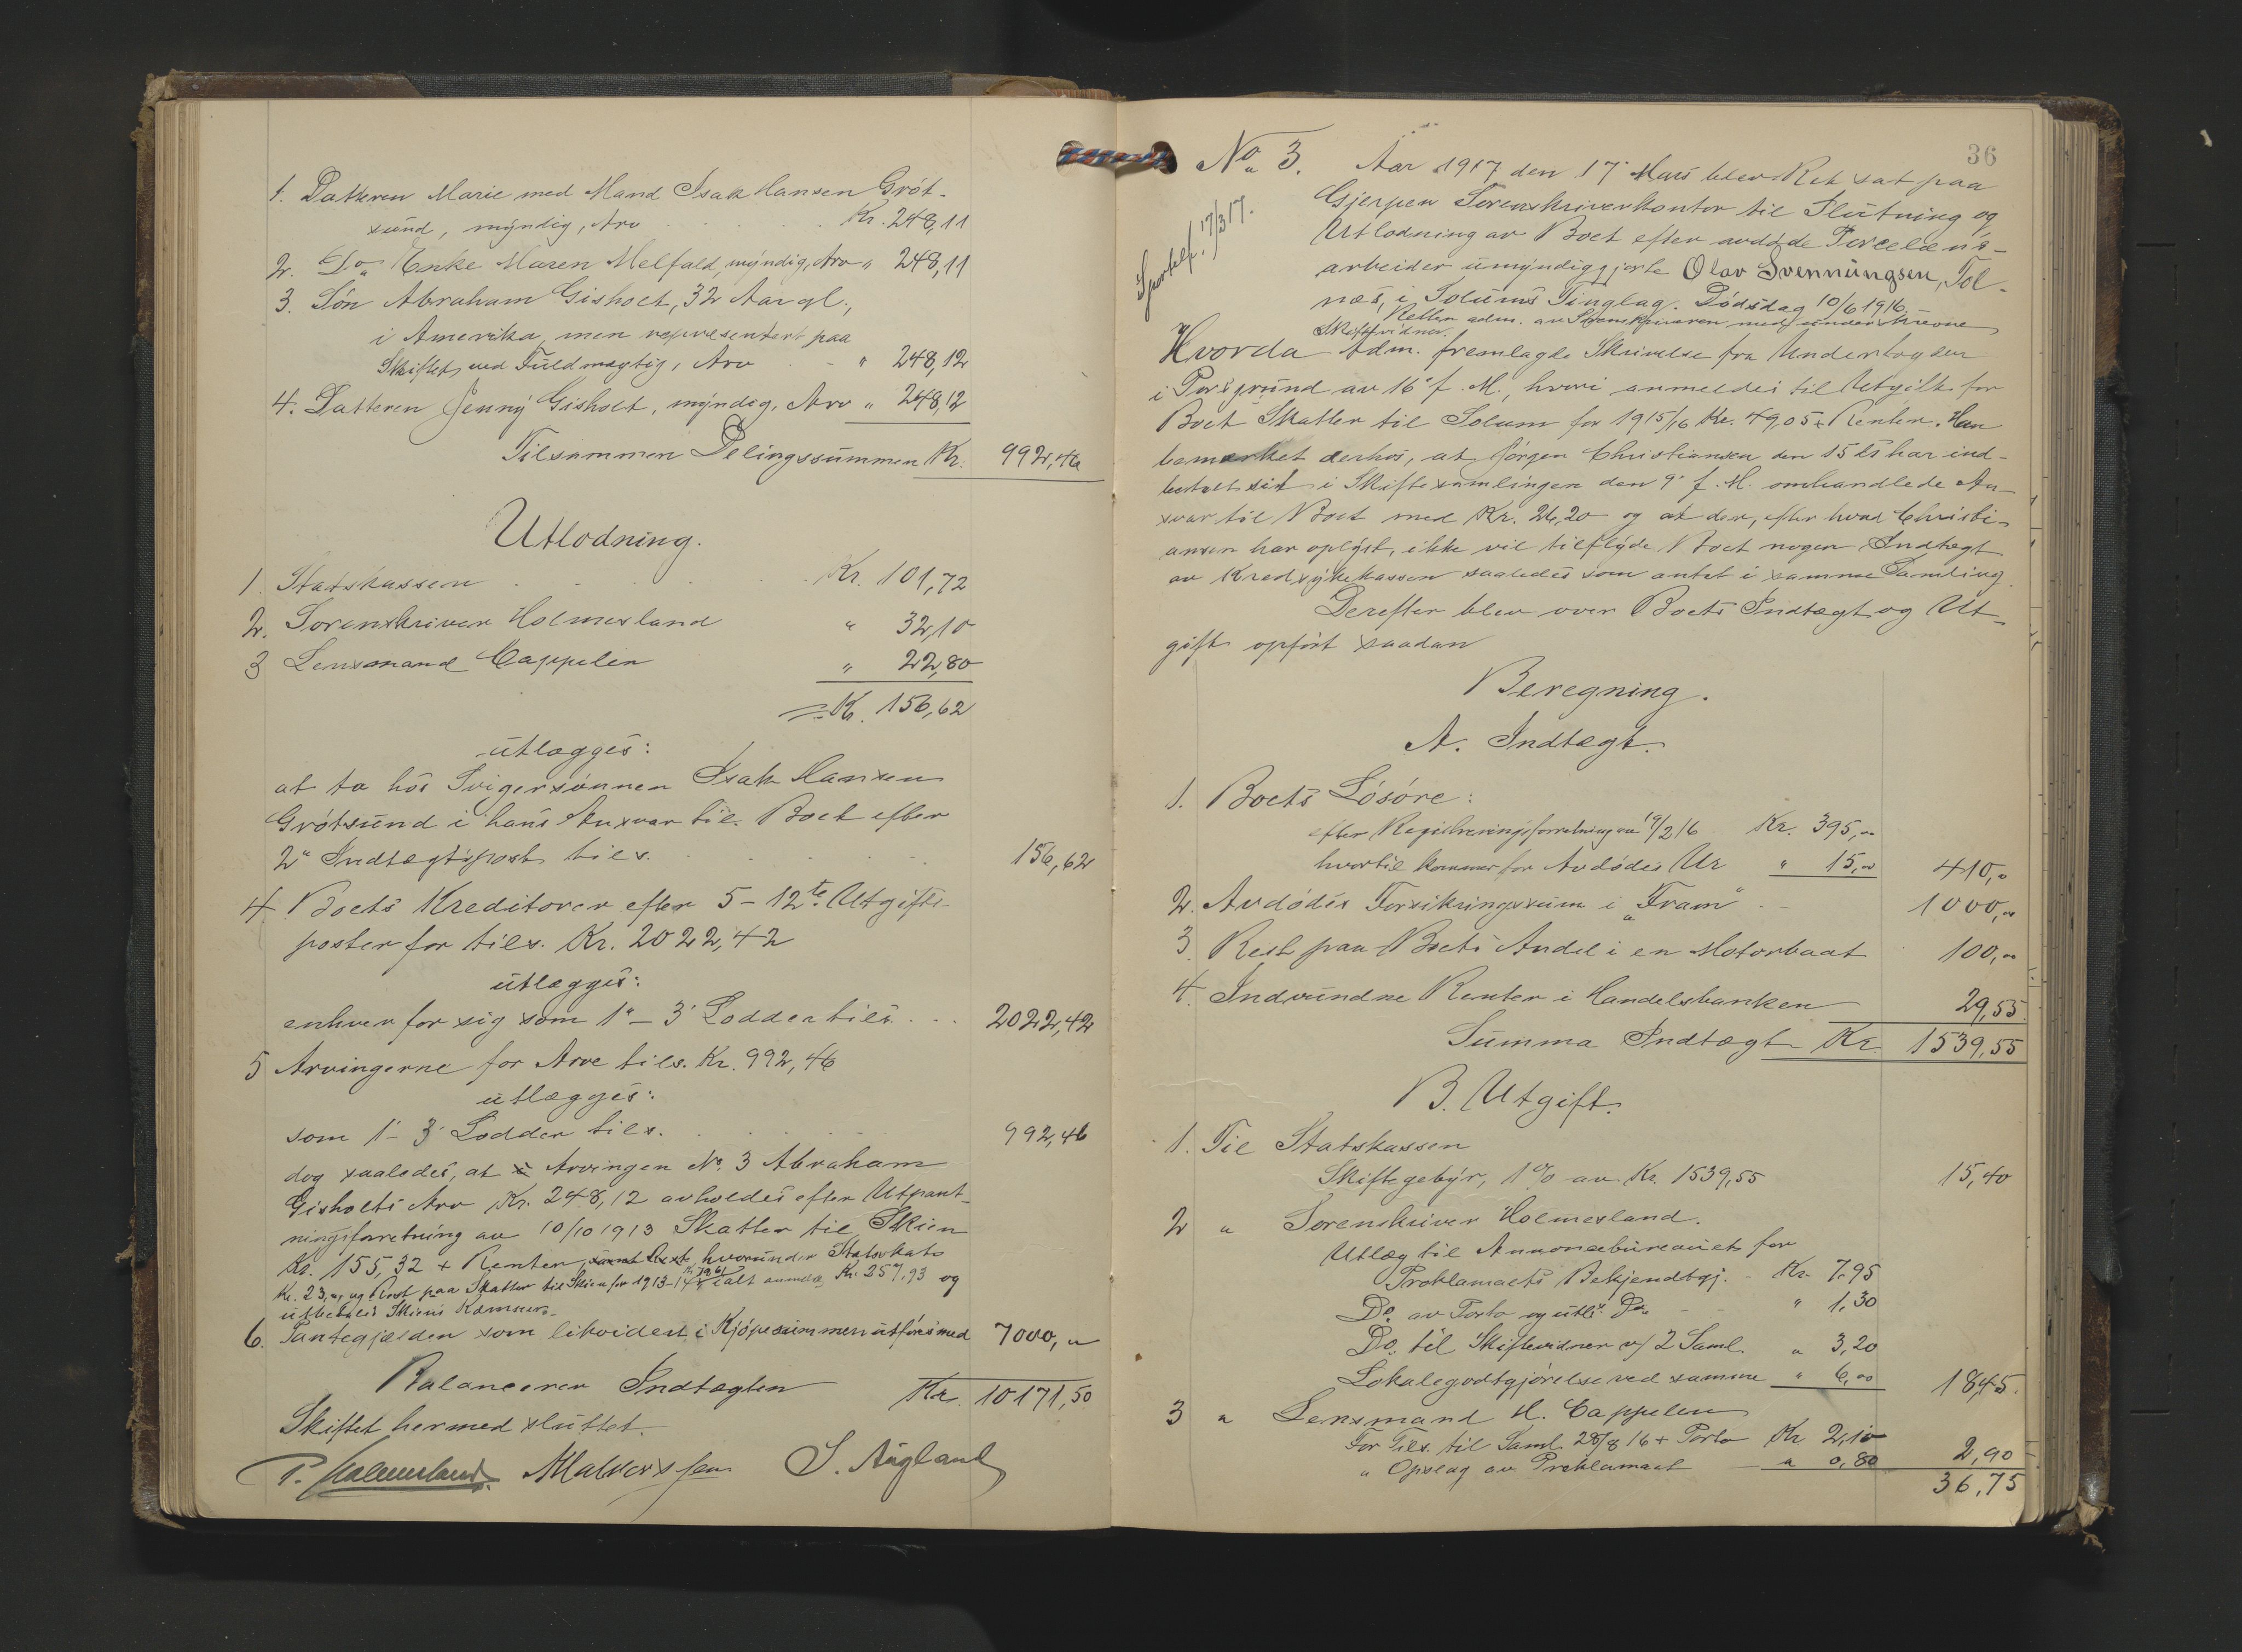 1. Datteren Marie med Mand Isak Hansen Gröt-
sund, myndig, Arv . . . . Kr. 248,11
2. Do Enke Maren Melfald, myndig, Arv " 248,11
3. Sön Abraham Gisholt, 32 Aar gl.,
i Amerika, men representert paa
Skiftet ved Fuldmægtig, Arv - " 248,12
4. Datteren Jenny Gisholt, myndig, Arv " 248,12
Tilsammen Delingssummen Kr. 992,46
Utlodning.
1. Statskassen . . . . Kr. 101,72
2. Sorenskriver Holmesland " 32,10
3 Lensmand Cappelen " 22,80
= Kr. 156,62
utlægges:
at ta hos Svigersönnen Isak Hansen
Grötsund i hans Ansvar til Boet efter
2' Indtægtspost tils. . . . . 156,62
4. Boets Kreditorer efter 5-12te Utgifts-
poster for tils. Kr. 2022,42
utlægges:
enhver for sig som 1'-3' Lodder tils. . . . 2022,42
5 Arvingerne for Arv tils. Kr. 992,46
utlægges:
som 1'-3' Lodder tils. . . . . 992,46
dog saaledes, at Arvingen No. 3 Abraham
Gisholts Arv Kr. 248,12 avholdes efter Utpant-
ningsforretning av 10/10 1913 Skatter til Skien
Kr. 155,32 + Renter, hvorunder Statsskat
Kr. 23,-, og Rest paa Skatter til Skien for 1913-14 ialt anmeldt Kr. 257,93 og
utbetales Skiens Kæmner.
6. Pantegjælden som likvidert i Kjöpesummen utföres med 7000,"
Balancerer Indtægten Kr. 10171,50
Skiftet hermed sluttet.
P. Holmesland. S. Augland
36
No. 3. Aar 1917 den 17' Mars blev Ret sat paa
Gjerpen Sorenskriverkontor til Slutning og
Utlodning av Boet efter avdöde Porcelæns-
arbeider umyndiggjorte Olav Svennungsen, Tol-
næs, i Solums Tinglag. Dödsdag 10/6 1916.
Retten adm. av Sorenskriveren med underskrevne
Skiftevidner.
Sportelf. 17/3 17.
Hvorda Adm. fremlagde Skrivelse fra Underfogden
i Porsgrund av 16' f. M., hvori anmeldes til Utgift for
Boet Skatter til Solum for 1915/16 Kr. 49,05 + Renter. Han
bemærket derhos, at Jörgen Christiansen den 15 ds har ind-
betalt sit i Skiftesamlingen den 9' f. M. omhandlede An-
svar til Boet med Kr. 26,20 og at der, efter hvad Christi-
ansen har oplyst, ikke vil tilflyde Boet nogen Indtægt
av Kredssykekassen saaledes som antat i samme Samling.
Derefter blev over Boets Indtægt og Ut-
gift opfört saadan
Beregning.
A. Indtægt.
1. Boets Lösöre:
efter Registreringsforretning av 19/2 16 Kr. 395,00
hvortil kommer for Avdödes Ur " 15,00 410,"
2. Avdödes Forsikringssum i "Fram" - 1000,"
3. Rest paa Boets Andel i en Motorbaat 100,"
4. Indvundne Renter i Handelsbanken 29,55
Summa Indtægt Kr. 1539,55
B. Utgift.
1. Til Statskassen
Skiftegebyr, 1% av Kr. 1539,55 15,40
2 " Sorenskriver Holmesland.
Utlæg til Annoncebureauet for
Proklamaets Bekjendtgj. - Kr. 7,95
Do. av Porto og utl. Do. - - " 1,30
Do. til Skiftevidner v/ 2 Saml. " 3,20
Lokalegodtgjörelse ved samme " 6,00 18,45.
3 " Lensmand H. Cappelen
For Tils. til Saml. 28/8 16 + Porto Kr 2,10
" Opslag av Proklamaet " 0,80 2,90
36,75